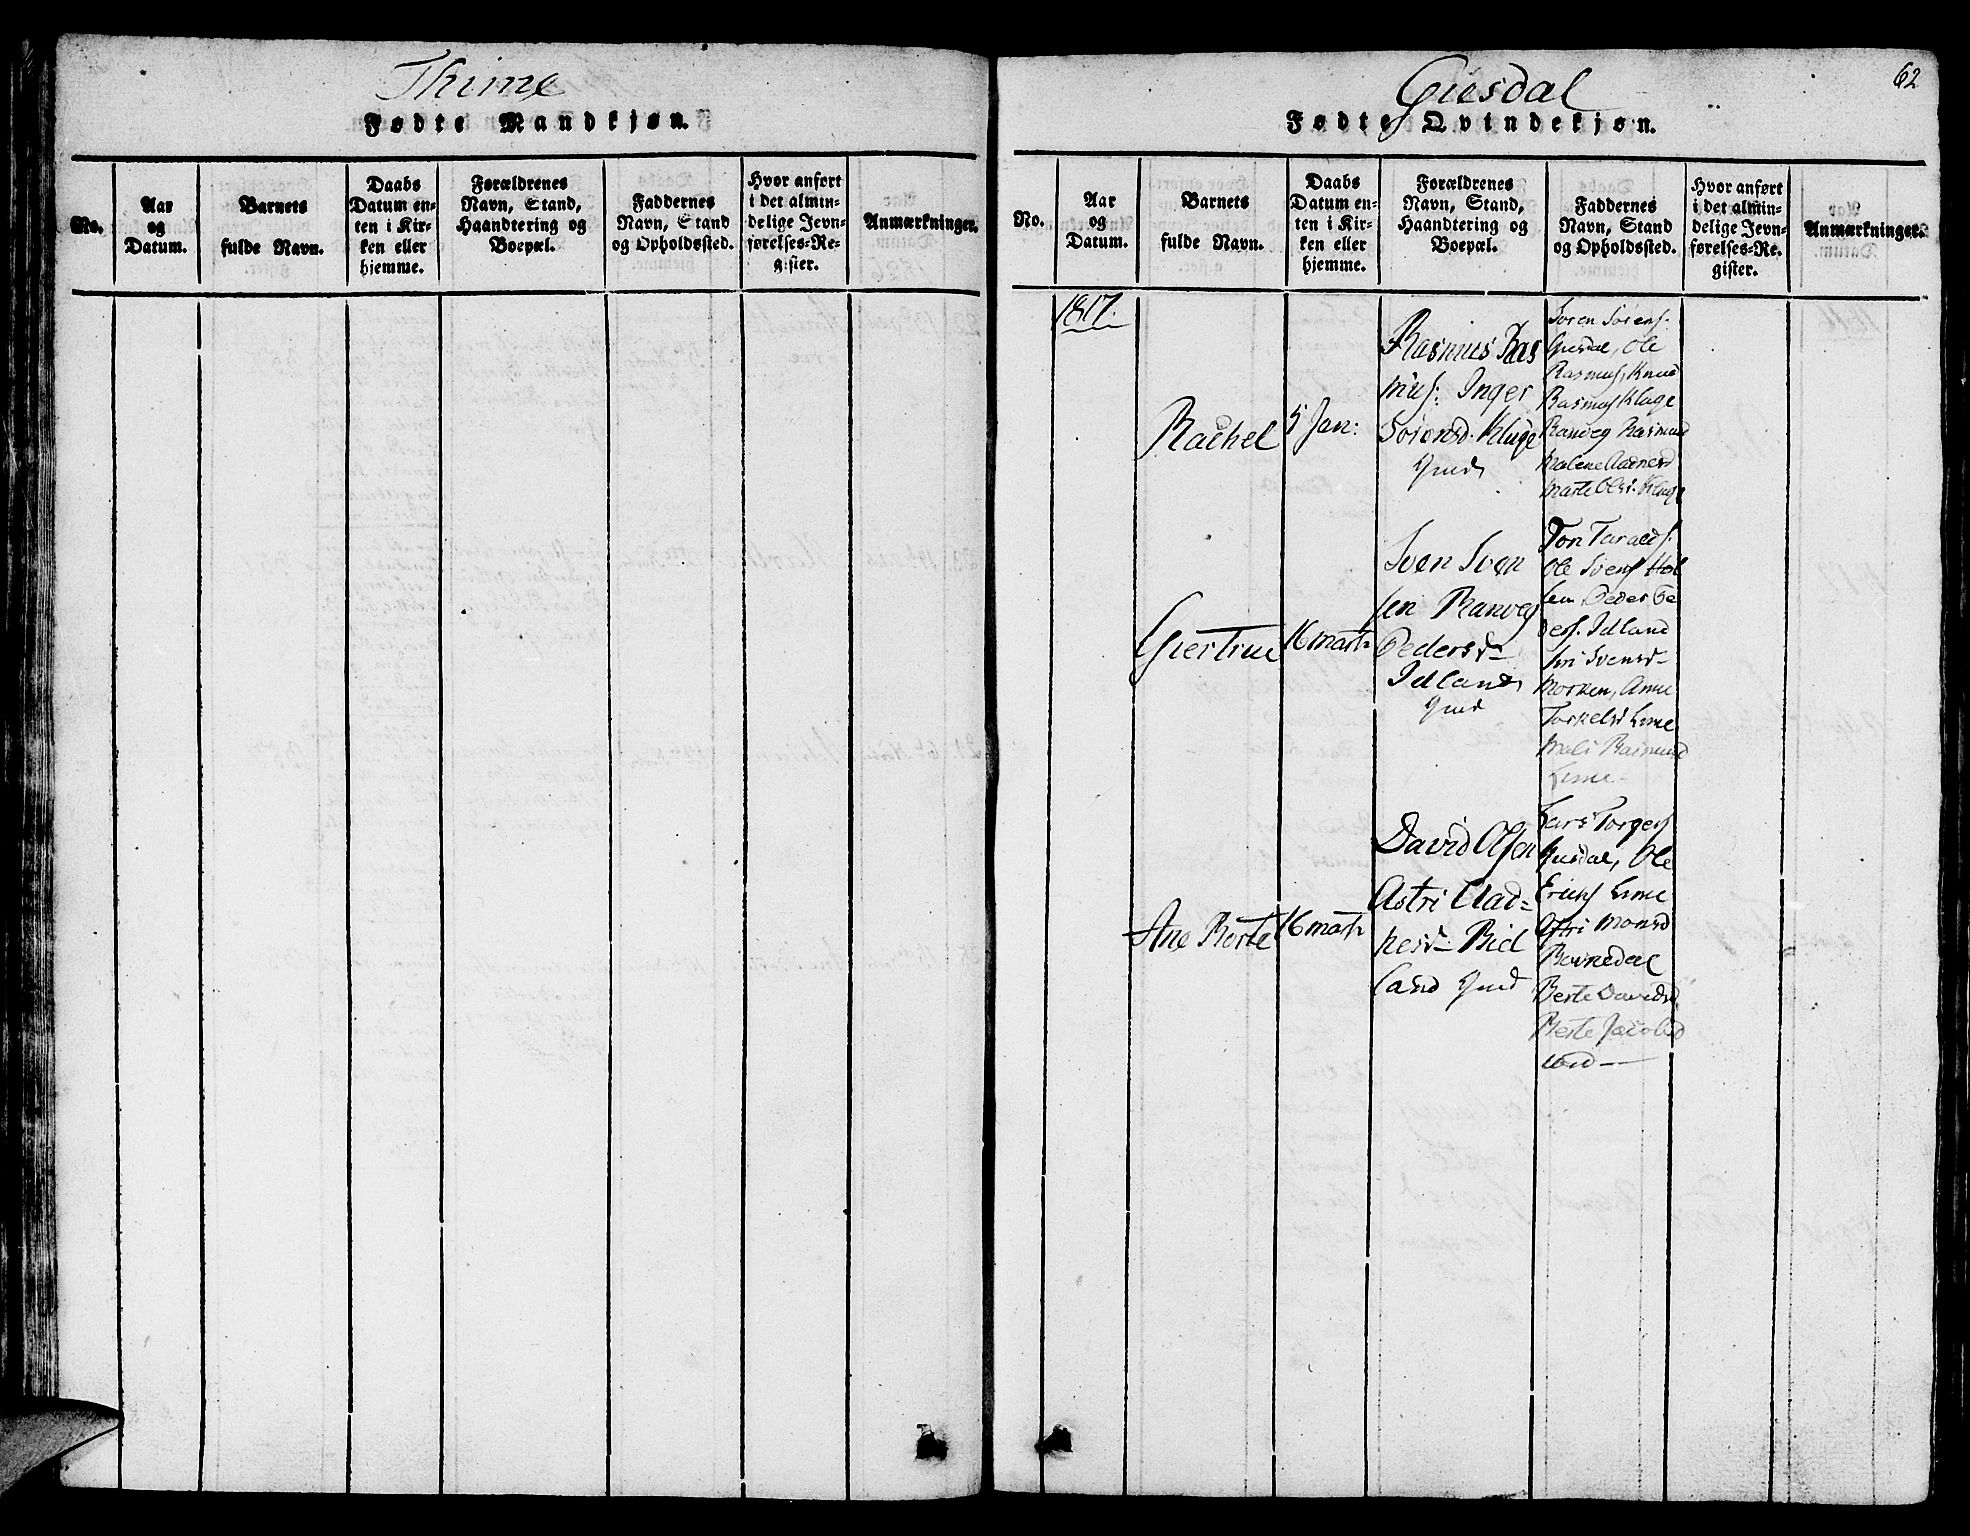 Thime
Fødte Mandkjøn.
No.
Aar
og
Datum.
Barnets
fulde Navn.
Daabs
Datum en-
ten i Kir-
ken eller
hjemme.
Forældrenes
Navn, Stand,
Haandtering og
Boepæl.
Faddernes
Navn, Stand
og Opholdssted.
Hvor anført
i det almin-
delige Jevn-
førelses-Re-
gister.
Anmærkninger.
Giesdal
62
Fødte Qvindekjøn.
No.
Aar
og
Datum.
Barnets
fulde Navn.
Daabs
Datum en-
ten i Kir-
ken eller
hjemme.
Forældrenes
Navn, Stand,
Haandtering og
Boepæl.
Faddernes
Navn, Stand
og Opholdssted.
Hvor anført
i det almin-
delige Jevn-
førelses-Re-
gister.
Anmærkninger.
1817.
Rachel
5 Jan:
Rasmus Ras
mus: Inger
Sørensd. Kluge
Soren Sørens:
Giesdal, Ole
Rasmus, Knud
Rasmus Kluge
Ranveg Rasmusd
Malene Aadnesd
Marte Olsd. Kluge
Giertrue
16 mart
Sven Sven
sen Ranveg
Pedersd
Idland
Ton Taralds:
Ole Svens Hol
len Peder Pe
ders. Idland
Siri Svensd
Morken, Anne
Torkelsd Lime
Mali Rasmusd
Lime
Ane Berte
16 mart
David Olsen
Astri Aad=
nesd Bid
land
Lars Torgers
Giesdal, Ole
Ericks Lime
Astri Monsd
Berte Davidsd
Berte Jacobsd